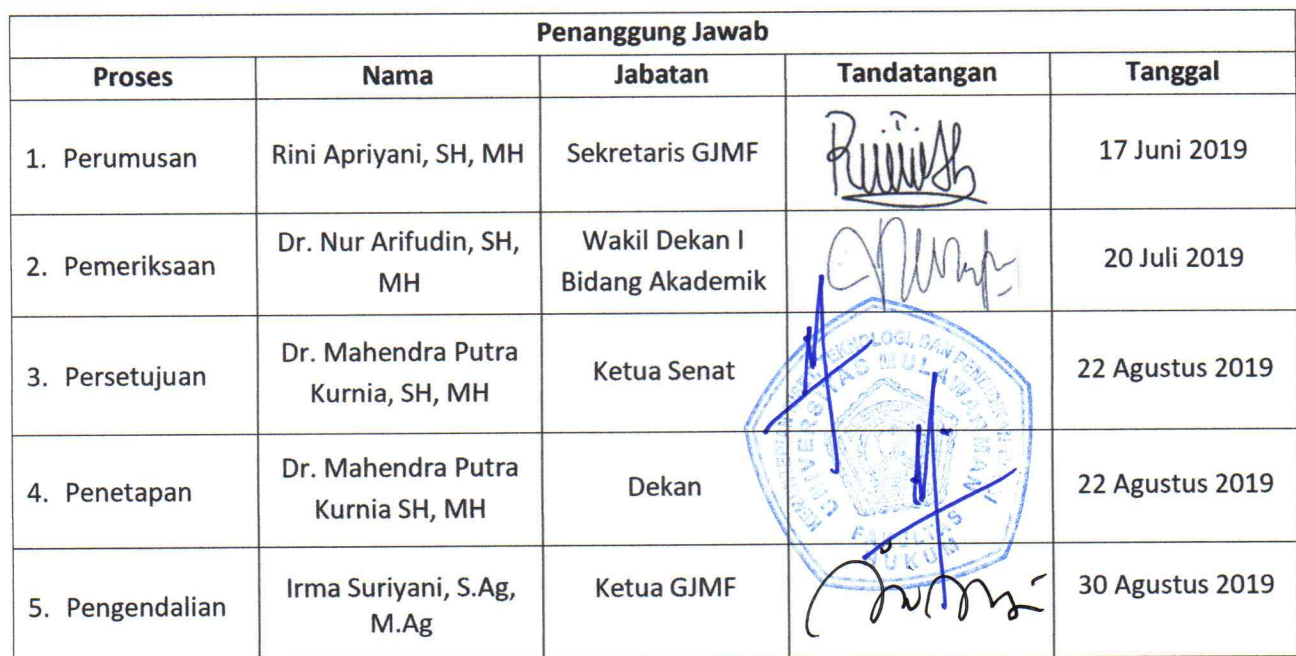 Penanggung Jawab
Proses Nama Jabatan Tandatangan Tanggal
1. Perumusan Rini Apriyani, SH, MH Sekretaris GJMF 17 Juni 2019
2. Pemeriksaan Dr. Nur Arifudin, SH, MH Wakil Dekan I Bidang Akademik 20 Juli 2019
3. Persetujuan Dr. Mahendra Putra Kurnia, SH, MH Ketua Senat 22 Agustus 2019
4. Penetapan Dr. Mahendra Putra Kurnia SH, MH Dekan 22 Agustus 2019
5. Pengendalian Irma Suriyani, S.Ag, M.Ag Ketua GJMF 30 Agustus 2019
UNIVERSITAS MULAWARMAN
FAKULTAS
HUKUM